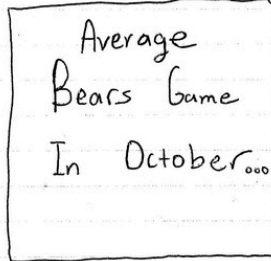 Average
Bears Game
In October...